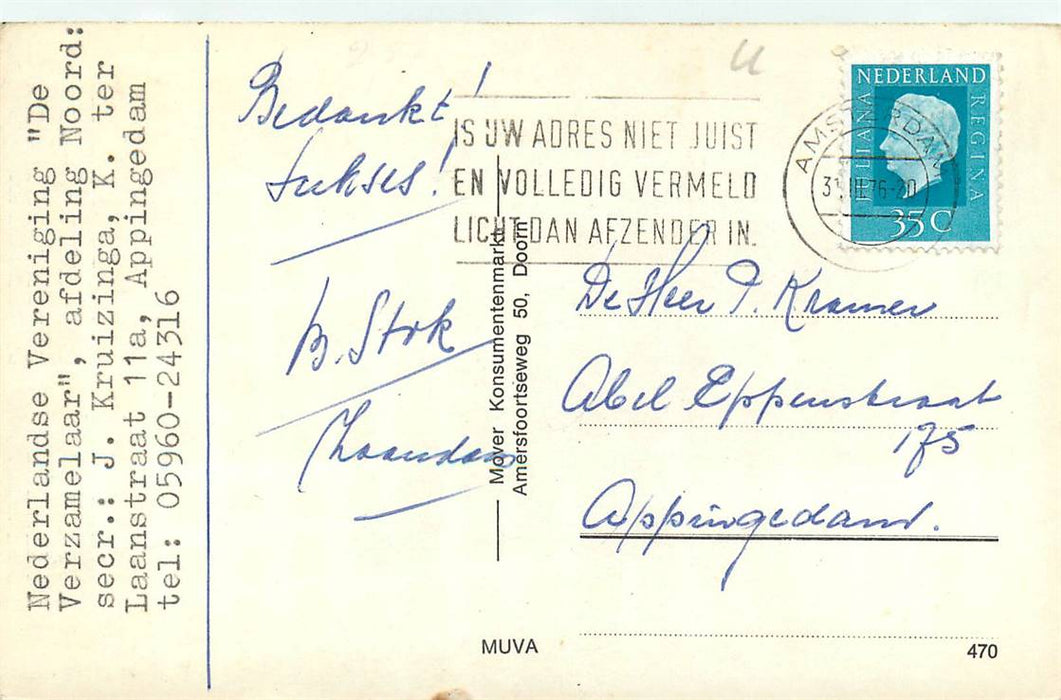 Nederlandse Vereniging "De
Verzamelaar", afdeling Noord:
secr.: J. Kruizinga, K. ter
Laanstraat 11a, Appingedam
tel: 05960-24316
Bedankt!
Sukses!
B. Stok
Zaandam
IS UW ADRES NIET JUIST
EN VOLLEDIG VERMELD
LICHT DAN AFZENDER IN.
AMSTERDAM
III 76-20
NEDERLAND
JULIANA REGINA
35C
Mover Konsumentenmarkt
Amersfoortseweg 50, Doorn
De Heer P. Kramer
Abel Eppenstraat
175
Appingedam.
MUVA
470